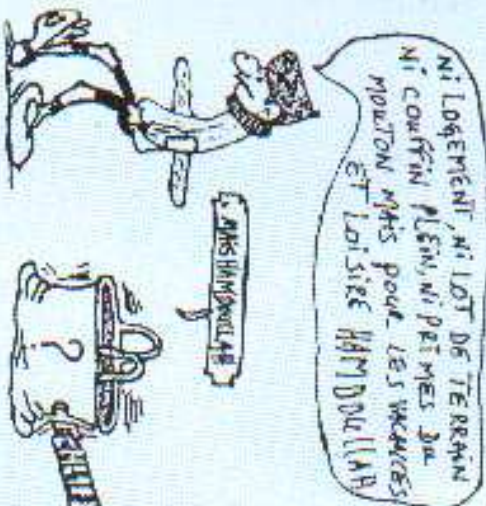 Ni LOGEMENT, Ni LOT DE TERRAIN
Ni COUFFIN PLEIN, Ni PRIMES DU
MOUTON MAIS POUR LES VACANCES
ET LOISIRE HAMDOULLAH
MAIS HAMDOULLAH
?